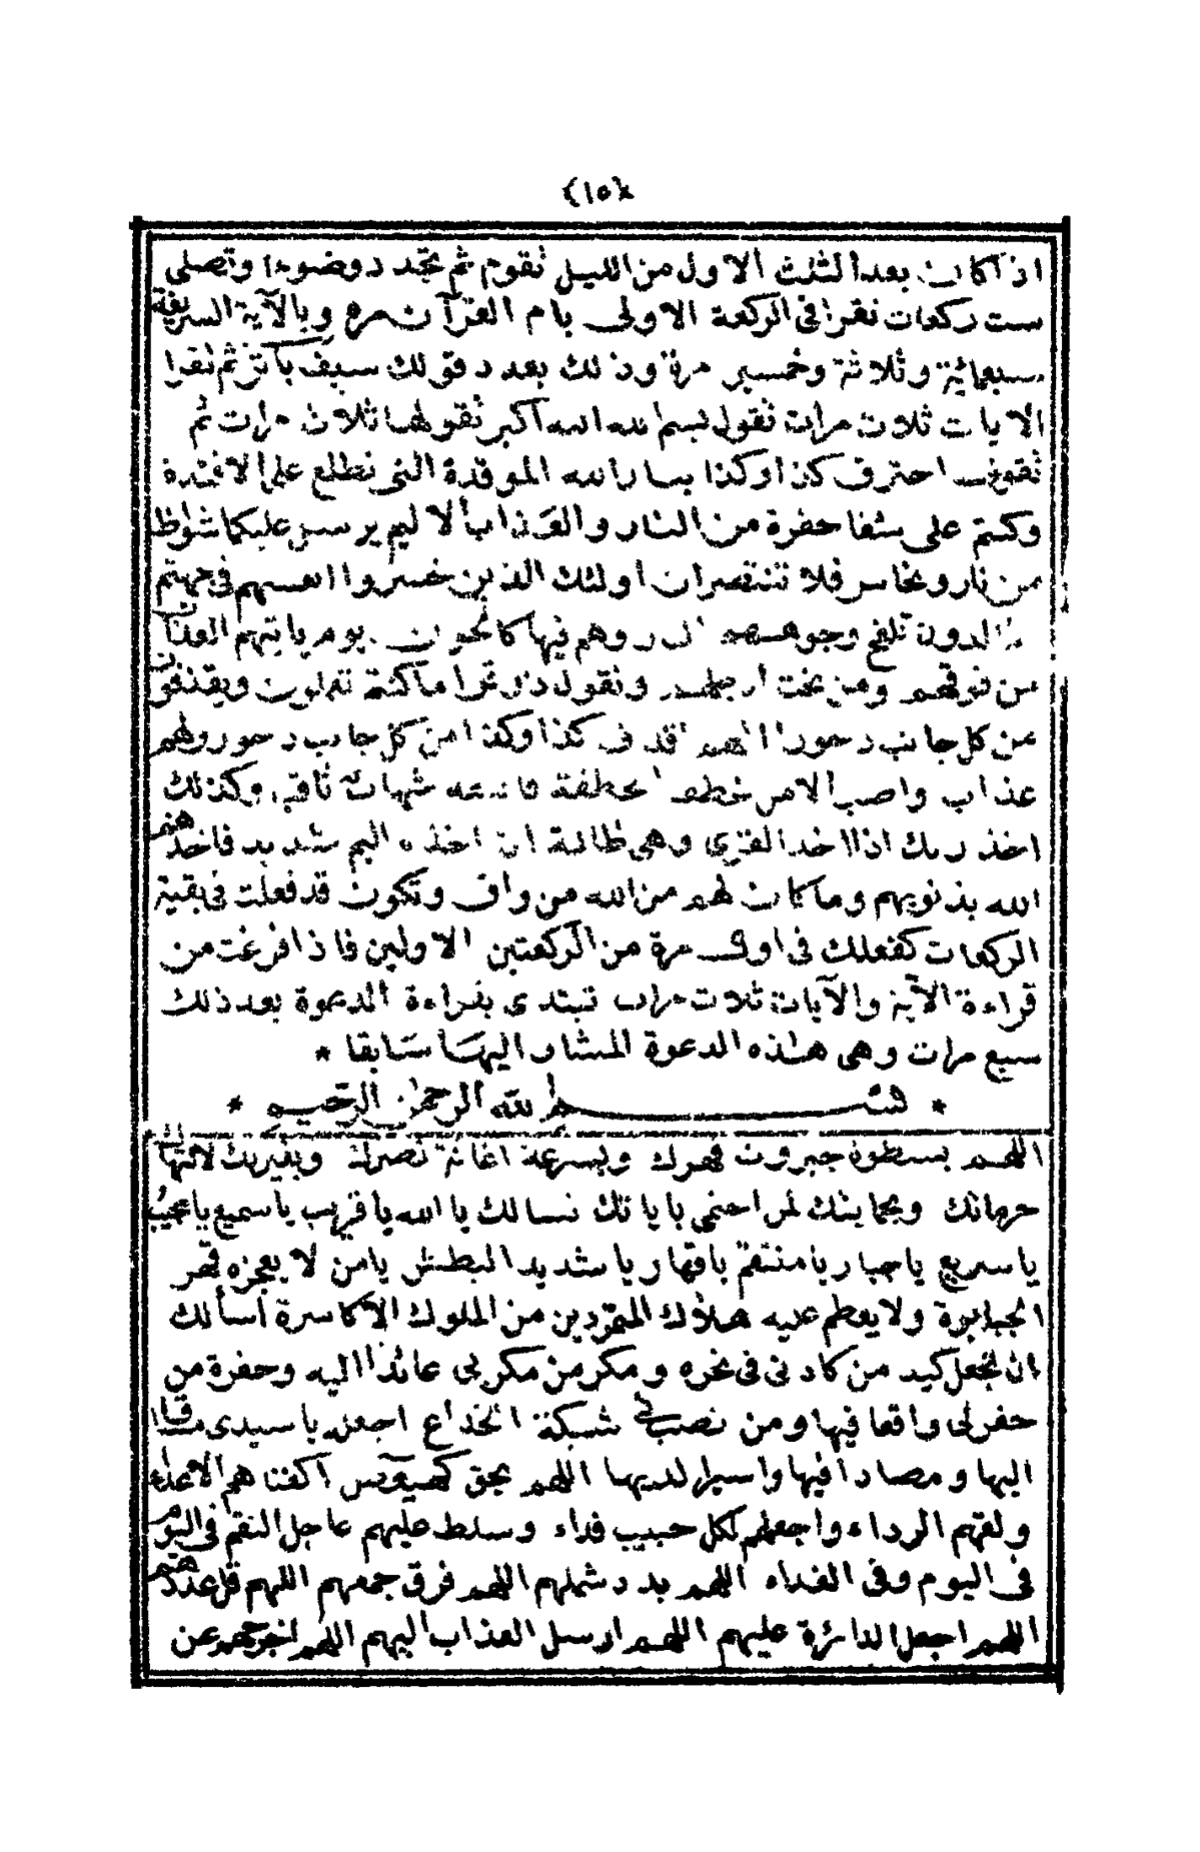 {١٥}
اذا كان بعد الثلث الاول من الليل تقوم ثم تجدد وضوءا وتصلى
ست ركعات تقرا فى الركعة الاولى بام القرآن مره وبالآية الشريفة
سبعمائة وثلاثة وخمسين مرة وذلك بعد قولك سيف باتر ثم تقرا
الايات ثلاث مرات تقول بسم الله الله اكبر تقولها ثلاث مرات ثم
تقول احترق كذا وكذا بنار الله الموقدة التى تطلع على الافئدة
وكنتم على شفا حفرة من النار والعذاب الاليم يرسل عليكما شواظ
من نار ونحاس فلا تنتصران اولئك الذين خسروا انفسهم فى جهنم
خالدون تلفح وجوههم النار وهم فيها كالحون يوم ياتيهم العذاب
من فوقهم ومن تحت ارجلهم ونقول ذوقوا ما كنتم تعملون ويقذفون
من كل جانب دحورا اللهم اقذف كذا وكذا من كل جانب دحورا ولهم
عذاب واصب الا من خطف الخطفة فاتبعه شهاب ثاقب وكذلك
اخذ ربك اذا اخذ القرى وهى ظالمة ان اخذه اليم شديد فاخذهم
الله بذنوبهم وما كان لهم من الله من واق وتكون قد فعلت فى بقية
الركعات كفعلك فى اول مرة من الركعتين الاولين فاذا فرغت من
قراءة الآية والآيات ثلاث مرات تبتدى بقراءة الدعوة بعد ذلك
سبع مرات وهى هذه الدعوة المشار اليها سابقا *
* بسم الله الرحمن الرحيم *
اللهم بسطوة جبروت قهرك وبسرعة اغاثة نصرك وبغيرتك لانتهاك
حرماتك وبحمايتك لمن احتمى باياتك نسالك يا الله يا قريب يا سميع يا مجيب
يا سريع يا جبار يا منتقم يا قهار يا شديد البطش يا من لا يعجزه قهر
الجبابرة ولا يعظم عليه هلاك المتمردين من الملوك الاكاسرة اسألك
ان تجعل كيد من كادنى فى نحره ومكر من مكر بى عائدا اليه وحفرة من
حفر لى واقعا فيها ومن نصب لى شبكة الخداع اجعله يا سيدى مساقا
اليها ومصادا فيها واسيرا لديها اللهم بحق كهيعص اكفنا هم الاعداء
ولقهم الرداء واجعلهم لكل حبيب فداء وسلط عليهم عاجل النقم فى اليوم
فى اليوم وفى الغداء اللهم بدد شملهم اللهم فرق جمعهم اللهم قلل عددهم
اللهم اجعل الدائرة عليهم اللهم ارسل العذاب اليهم اللهم اخرجهم عن